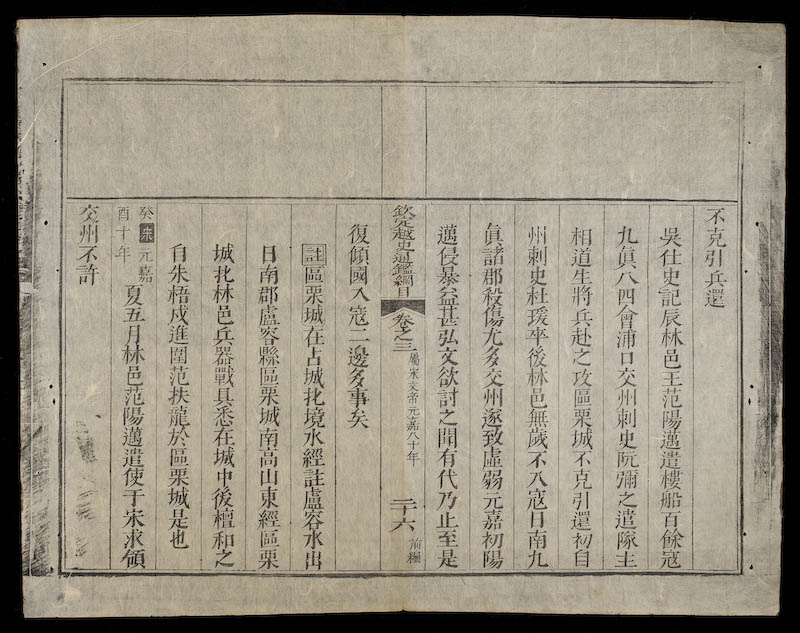 不克引兵還
吳仕史記辰林邑王范陽邁遣樓船百餘寇
九眞八四會浦口交州刺史阮彌之遣隊主
相道生將兵赴之攻區栗城不克引還初自
州刺史杜瑗卒後林邑無歲不入寇日南九
眞諸郡殺傷尤多交州遂致虛弱元嘉初陽
邁侵暴益甚弘文欲討之聞有代乃止至是
欽定越史通鑑綱目 卷之三 屬宋文帝元嘉八十年 二十六 前編
復傾國入寇二邊多事矣
註區栗城在占城北境水經註盧容水出
日南郡盧容縣區栗城南高山東經區栗
城北林邑兵器戰具悉在城中後檀和之
自朱梧戍進圍范扶龍於區栗城是也
癸酉宋元嘉十年夏五月林邑范陽邁遣使于宋求領
交州不許